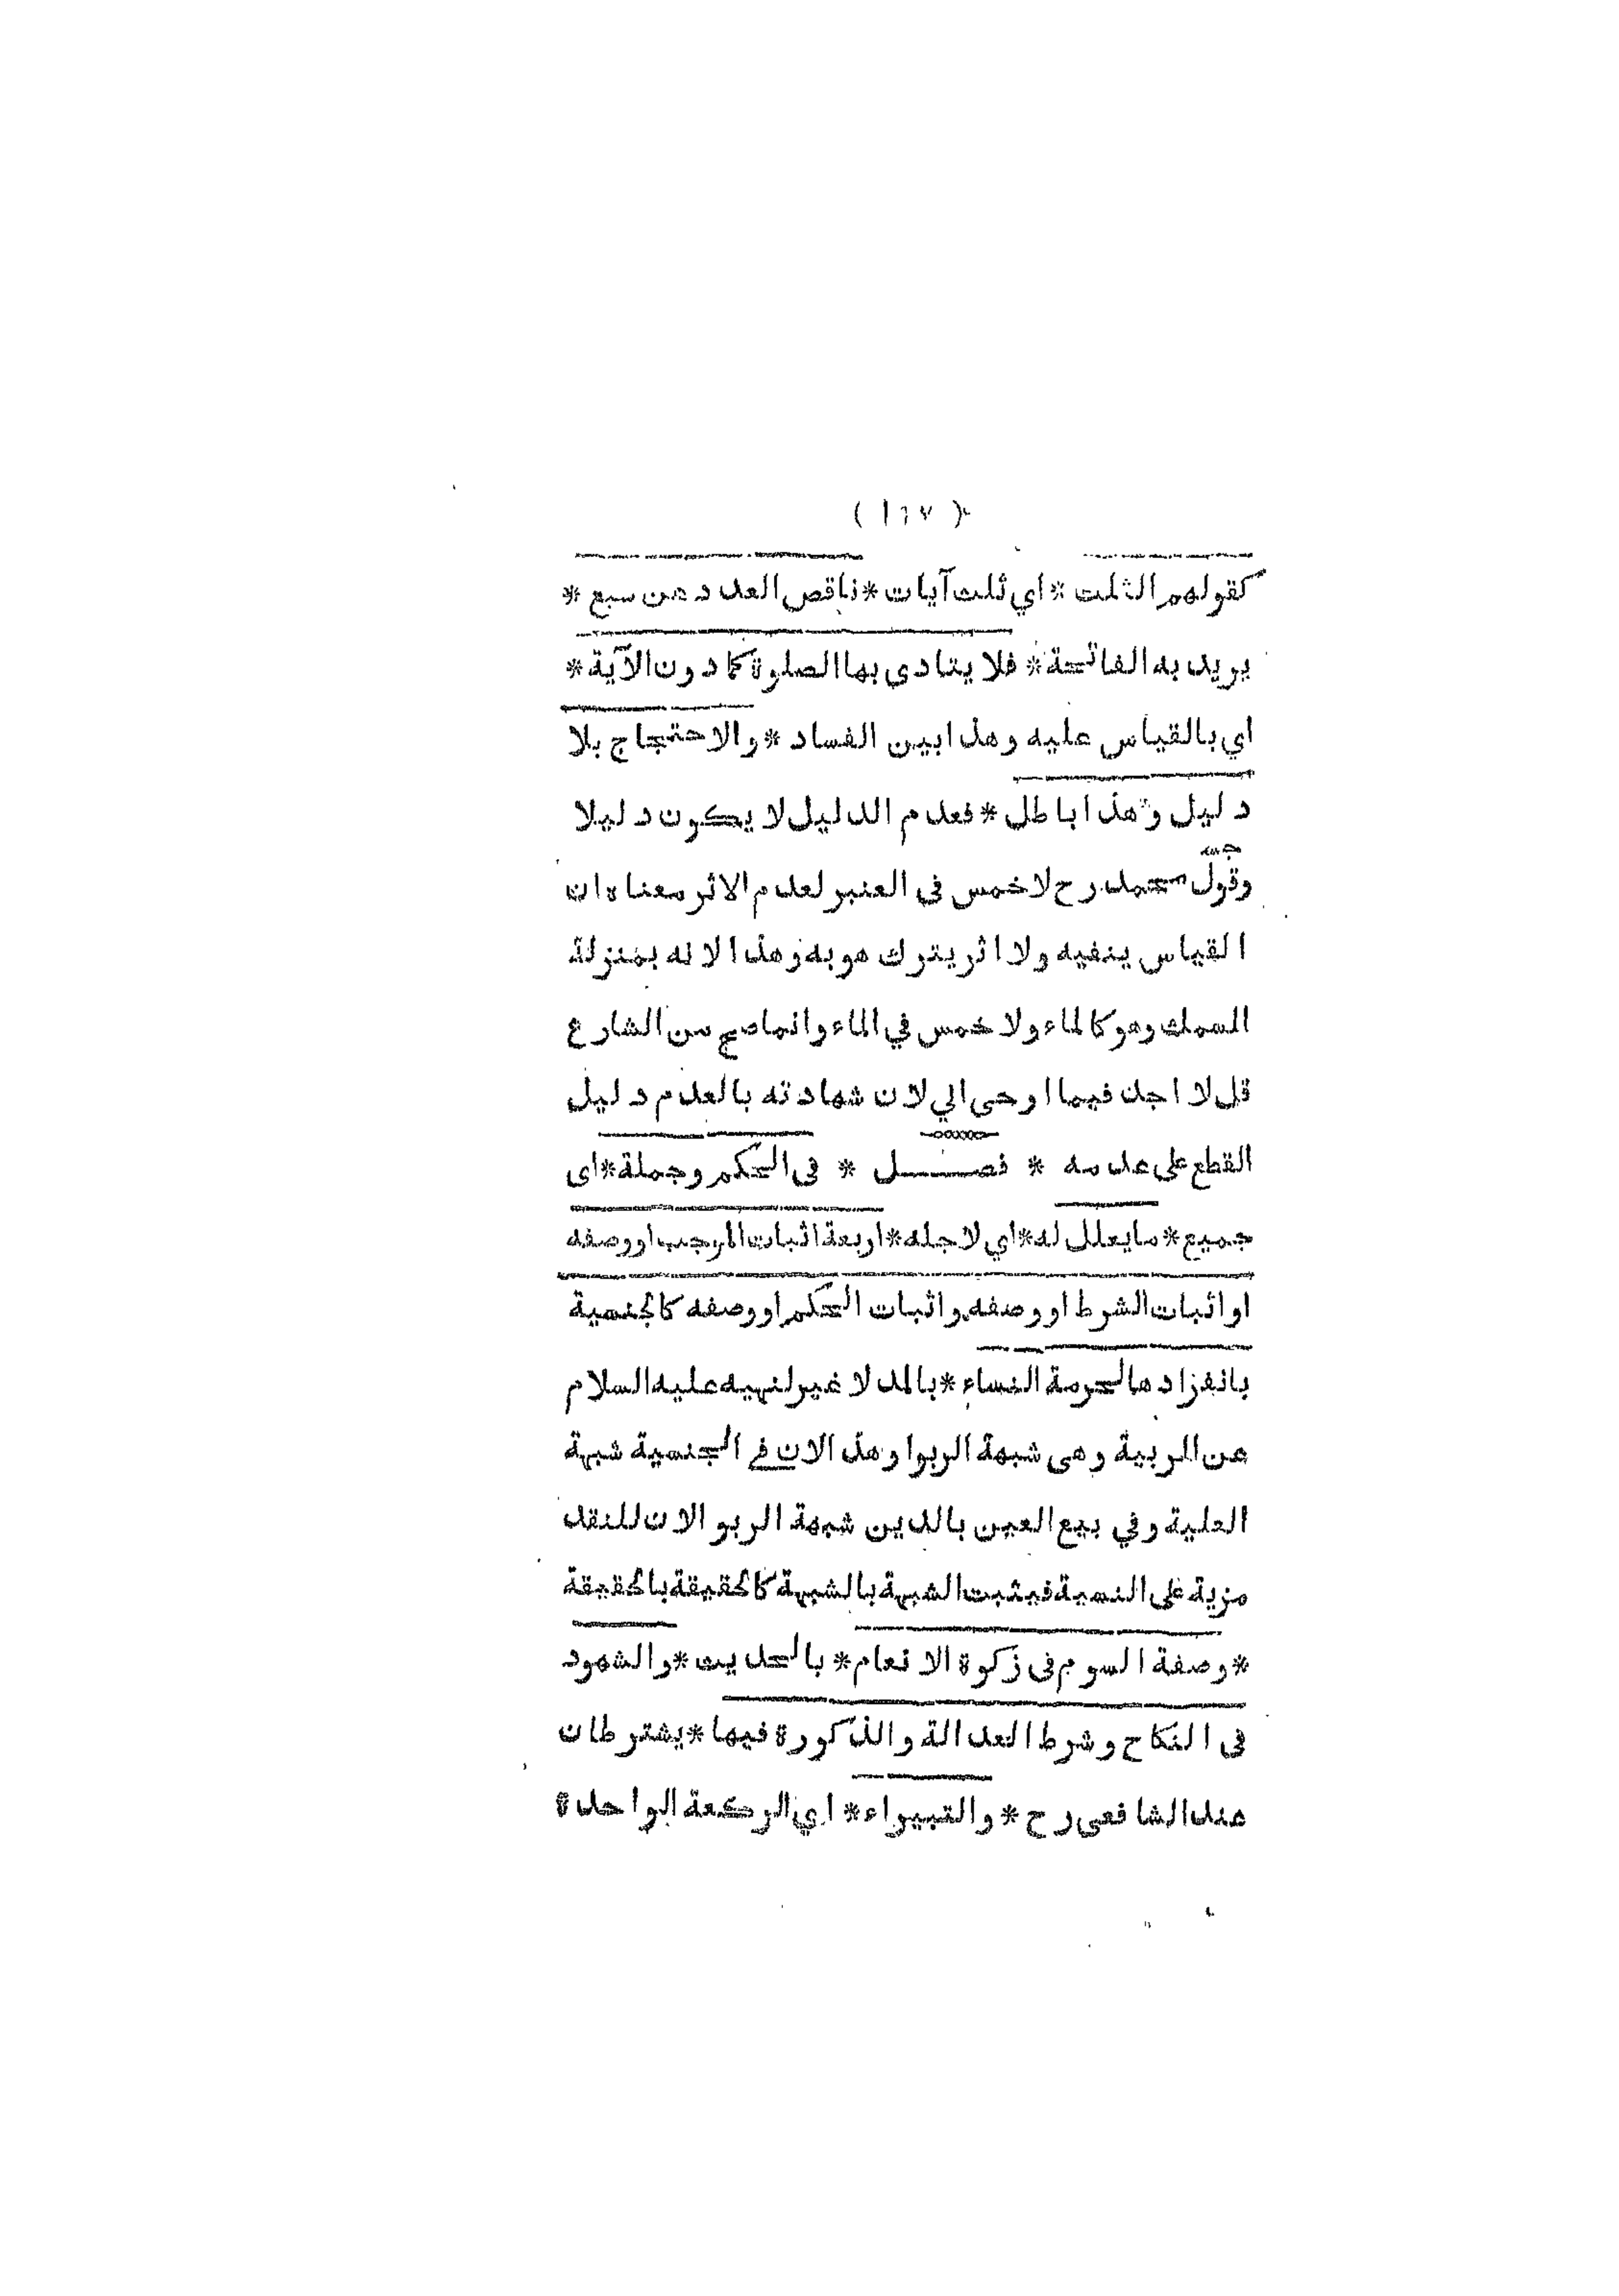 ( ١٦٧ )
كقولهم الثلث * اي ثلث آيات * ناقص العدد عن سبع *
يريد به الفاتحة * فلا يتادى بها الصلوة كما دون الآية *
اي بالقياس عليه وهذا بين الفساد * والاحتجاج بلا
دليل وهذا باطل * فعدم الدليل لا يكون دليلا
وقول محمد رح لا خمس فى العنبر لعدم الاثر معناه ان
القياس ينفيه ولا اثر يترك هو به وهذا لانه بمنزلة
السمك وهو كالماء ولا خمس في الماء وانما صح من الشارع
قل لا اجد فيما اوحى الي لان شهادته بالعدم دليل
القطع على عدمه * فصل * فى الحكم وجملة * اى
جميع * ما يعلل له * اي لاجله * اربعة اثبات الموجب او وصفه
او اثبات الشرط او وصفه واثبات الحكم او وصفه كالجنسية
بانفرادها لحرمة النساء * بالمد لا غير لنهيه عليه السلام
عن الريبة وهى شبهة الربوا وهذا لان في الجنسية شبهة
العلية وفي بيع العين بالدين شبهة الربو الان للنقد
مزية على النسية فيثبت الشبهة بالشبهة كالحقيقة بالحقيقة
* وصفة السوم فى زكوة الانعام * بالحديث * والشهود
فى النكاح وشرط العدالة والذكورة فيها * يشترطان
عند الشافعى رح * والبتيراء * اي الركعة الواحدة